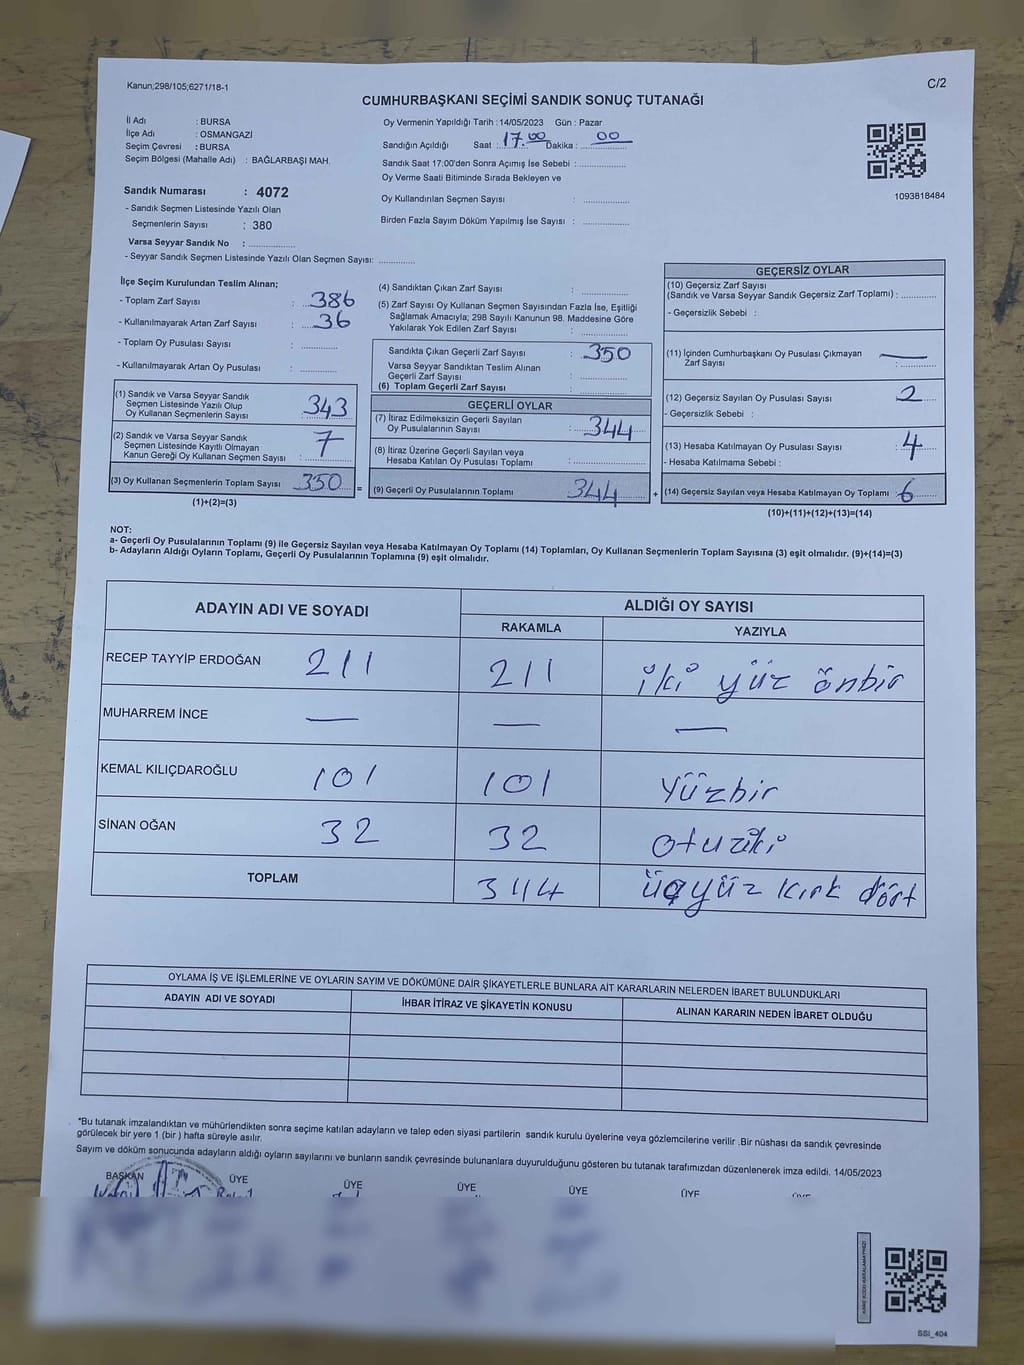 Kanun;298/105;6271/18-1
C/2
CUMHURBAŞKANI SEÇİMİ SANDIK SONUÇ TUTANAĞI
İl Adı : BURSA
İlçe Adı : OSMANGAZİ
Seçim Çevresi : BURSA
Seçim Bölgesi (Mahalle Adı) : BAĞLARBAŞI MAH.
Oy Vermenin Yapıldığı Tarih :14/05/2023 Gün : Pazar
Sandığın Açıldığı Saat : 17.00 Dakika : 00
Sandık Saat 17:00'den Sonra Açımış İse Sebebi :
Oy Verme Saati Bitiminde Sırada Bekleyen ve
Oy Kullandırılan Seçmen Sayısı :
Birden Fazla Sayım Döküm Yapılmış İse Sayısı :
1093818484
Sandık Numarası : 4072
- Sandık Seçmen Listesinde Yazılı Olan
Seçmenlerin Sayısı : 380
Varsa Seyyar Sandık No :
- Seyyar Sandık Seçmen Listesinde Yazılı Olan Seçmen Sayısı:
İlçe Seçim Kurulundan Teslim Alınan;
- Toplam Zarf Sayısı : 386
- Kullanılmayarak Artan Zarf Sayısı : 36
- Toplam Oy Pusulası Sayısı :
- Kullanılmayarak Artan Oy Pusulası :
(1) Sandık ve Varsa Seyyar Sandık
Seçmen Listesinde Yazılı Olup
Oy Kullanan Seçmenlerin Sayısı : 343
(2) Sandık ve Varsa Seyyar Sandık
Seçmen Listesinde Kayıtlı Olmayan
Kanun Gereği Oy Kullanan Seçmen Sayısı : 7
(3) Oy Kullanan Seçmenlerin Toplam Sayısı 350
(1)+(2)=(3)
(4) Sandıktan Çıkan Zarf Sayısı :
(5) Zarf Sayısı Oy Kullanan Seçmen Sayısından Fazla İse, Eşitliği
Sağlamak Amacıyla; 298 Sayılı Kanunun 98. Maddesine Göre
Yakılarak Yok Edilen Zarf Sayısı :
Sandıkta Çıkan Geçerli Zarf Sayısı : 350
Varsa Seyyar Sandıktan Teslim Alınan
Geçerli Zarf Sayısı :
(6) Toplam Geçerli Zarf Sayısı :
GEÇERLİ OYLAR
(7) İtiraz Edilmeksizin Geçerli Sayılan
Oy Pusulalarının Sayısı : 344
(8) İtiraz Üzerine Geçerli Sayılan veya
Hesaba Katılan Oy Pusulası Toplamı :
= (9) Geçerli Oy Pusulalarının Toplamı 344 +
GEÇERSİZ OYLAR
(10) Geçersiz Zarf Sayısı
(Sandık ve Varsa Seyyar Sandık Geçersiz Zarf Toplamı) :
- Geçersizlik Sebebi :
(11) İçinden Cumhurbaşkanı Oy Pusulası Çıkmayan
Zarf Sayısı : —
(12) Geçersiz Sayılan Oy Pusulası Sayısı : 2
- Geçersizlik Sebebi :
(13) Hesaba Katılmayan Oy Pusulası Sayısı : 4
- Hesaba Katılmama Sebebi :
(14) Geçersiz Sayılan veya Hesaba Katılmayan Oy Toplamı : 6
(10)+(11)+(12)+(13)=(14)
NOT:
a- Geçerli Oy Pusulalarının Toplamı (9) ile Geçersiz Sayılan veya Hesaba Katılmayan Oy Toplamı (14) Toplamları, Oy Kullanan Seçmenlerin Toplam Sayısına (3) eşit olmalıdır. (9)+(14)=(3)
b- Adayların Aldığı Oyların Toplamı, Geçerli Oy Pusulalarının Toplamına (9) eşit olmalıdır.
ADAYIN ADI VE SOYADI
ALDIĞI OY SAYISI
RAKAMLA YAZIYLA
RECEP TAYYİP ERDOĞAN 211 211 iki yüz önbir
MUHARREM İNCE — — —
KEMAL KILIÇDAROĞLU 101 101 Yüzbir
SİNAN OĞAN 32 32 otuziki
TOPLAM 344 üçyüz kırk dört
OYLAMA İŞ VE İŞLEMLERİNE VE OYLARIN SAYIM VE DÖKÜMÜNE DAİR ŞİKAYETLERLE BUNLARA AİT KARARLARIN NELERDEN İBARET BULUNDUKLARI
ADAYIN ADI VE SOYADI İHBAR İTİRAZ VE ŞİKAYETİN KONUSU ALINAN KARARIN NEDEN İBARET OLDUĞU
*Bu tutanak imzalandıktan ve mühürlendikten sonra seçime katılan adayların ve talep eden siyasi partilerin sandık kurulu üyelerine veya gözlemcilerine verilir .Bir nüshası da sandık çevresinde
görülecek bir yere 1 (bir ) hafta süreyle asılır.
Sayım ve döküm sonucunda adayların aldığı oyların sayılarını ve bunların sandık çevresinde bulunanlara duyurulduğunu gösteren bu tutanak tarafımızdan düzenlenerek imza edildi. 14/05/2023
BAŞKAN ÜYE ÜYE ÜYE ÜYE ÜYE
SSI_404